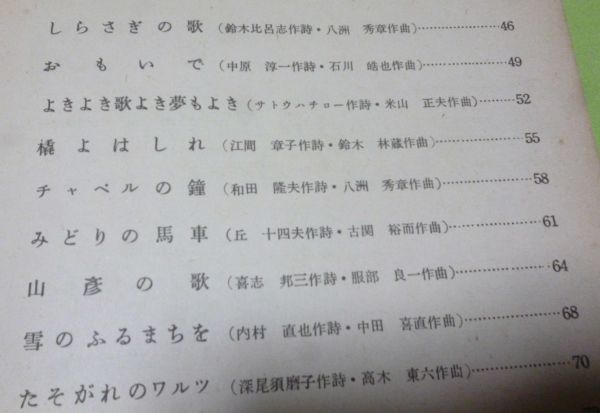 しらさぎの歌（鈴木比呂志作詩・八洲 秀章作曲）………………46
おもいで（中原 淳一作詩・石川 皓也作曲）………………49
よきよき歌よき夢もよき（サトウハチロー作詩・米山 正夫作曲）………52
橇よはしれ（江間 章子作詩・鈴木 林蔵作曲）………………55
チャペルの鐘（和田 隆夫作詩・八洲 秀章作曲）………………58
みどりの馬車（丘 十四夫作詩・古関 裕而作曲）………………61
山彦の歌（喜志 邦三作詩・服部 良一作曲）………………64
雪のふるまちを（内村 直也作詩・中田 喜直作曲）………………68
たそがれのワルツ（深尾須磨子作詩・高木 東六作曲）………………70